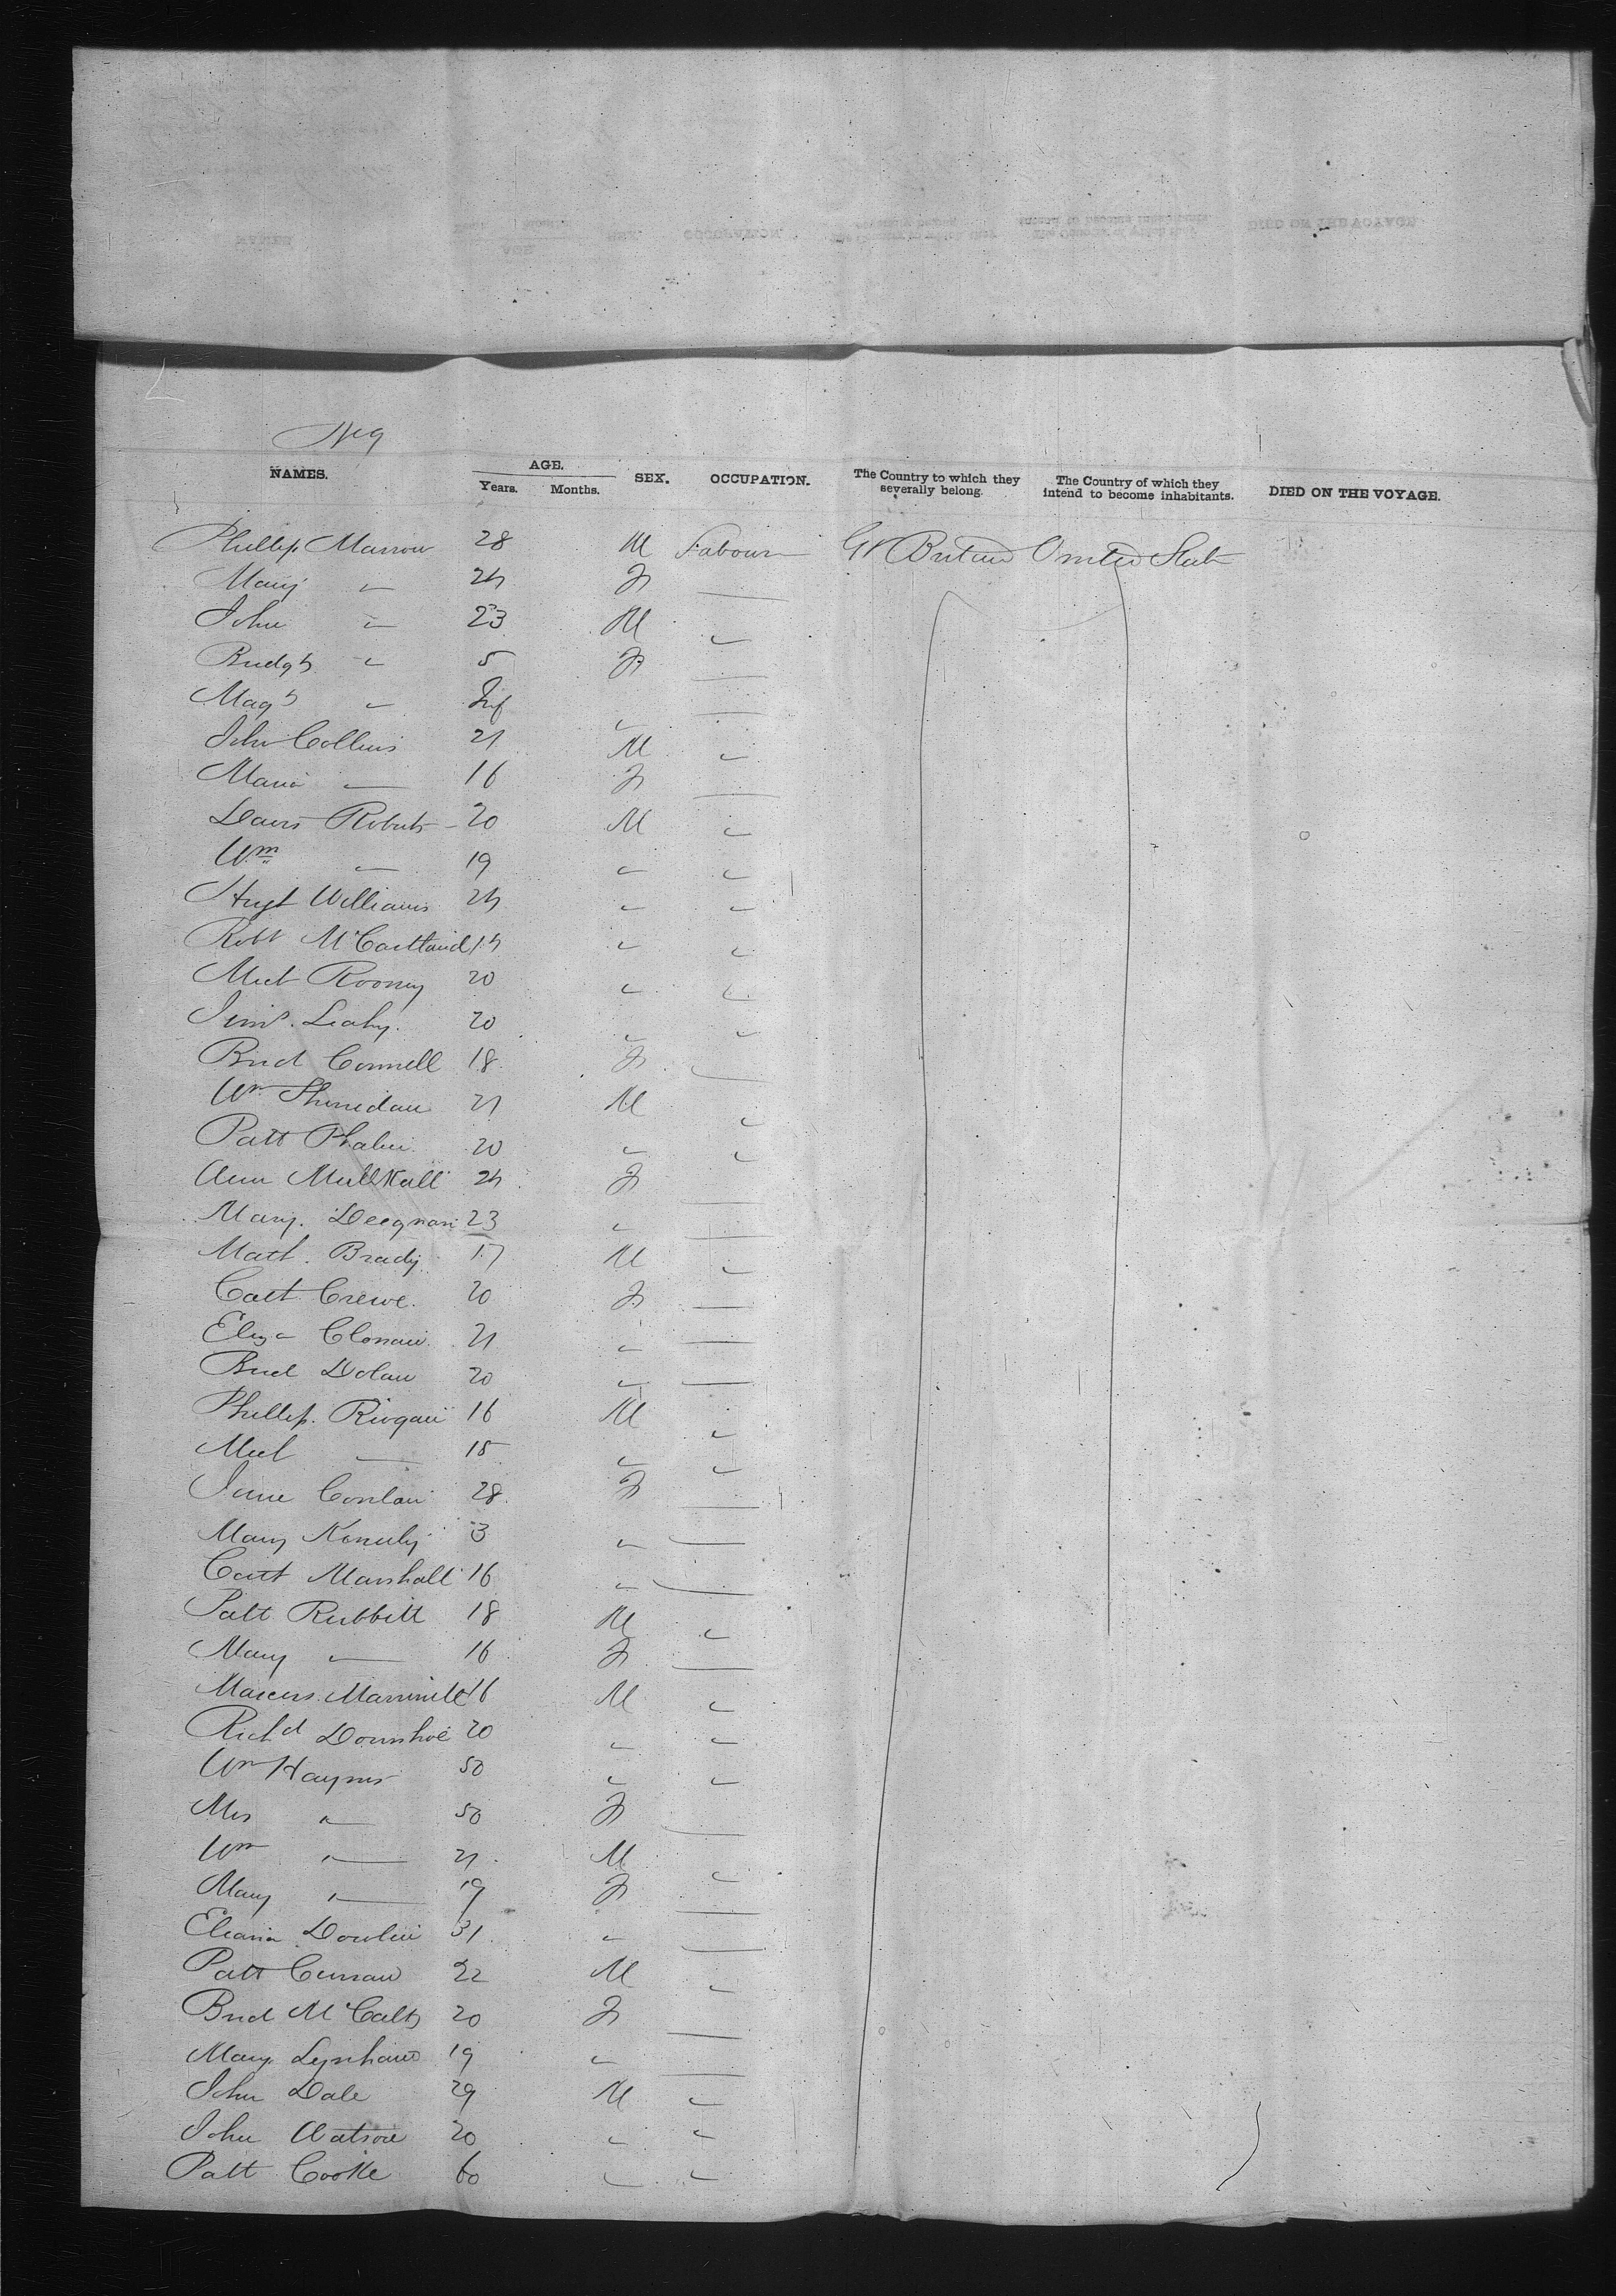 No 9
NAMES. AGE. Years. Months. SEX. OCCUPATION. The Country to which they severally belong. The Country of which they intend to become inhabitants. DIED ON THE VOYAGE.
Phillip Marrow 28 M Labourer Gt Britain United States
Mary " 24 F —
John " 23 M "
Bridgt " 5 F —
Magt " Inf " —
John Collins 21 M "
Maria — 16 F —
Davis Roberts 20 M "
Wm — 19 " "
Hugh Williams 24 " "
Robt McCartland 14 " "
Mich Rooney 20 " "
Jems. Leahy 20 " "
Brid Connell 18 F —
Wm Sheridan 21 M "
Patt Phalin 20 " "
Ann Mullkall 24 F —
Mary Deegnan 23 " —
Math. Brady 17 M "
Cath Crewe 20 F —
Eliza 21 " —
Brid Dolan 20 " —
Phillip 16 M "
Mich — 15 " "
Jane Conlan 28 F —
Mary 3 " —
Cath Marshall 16 " —
Patt Rubbitt 18 M "
Mary " 16 F —
Marcus 16 M "
Richd Donnhoe 20 " "
Wm Haynes 50 " "
Mrs " 50 F —
Wm " 21 M "
Mary " 19 F —
Dowlin 31 " —
Patt Curran 22 M "
Brid 20 F —
Mary Lynham 19 " —
John Dale 29 M "
John Watson 20 " "
Patt Cooke 60 " "